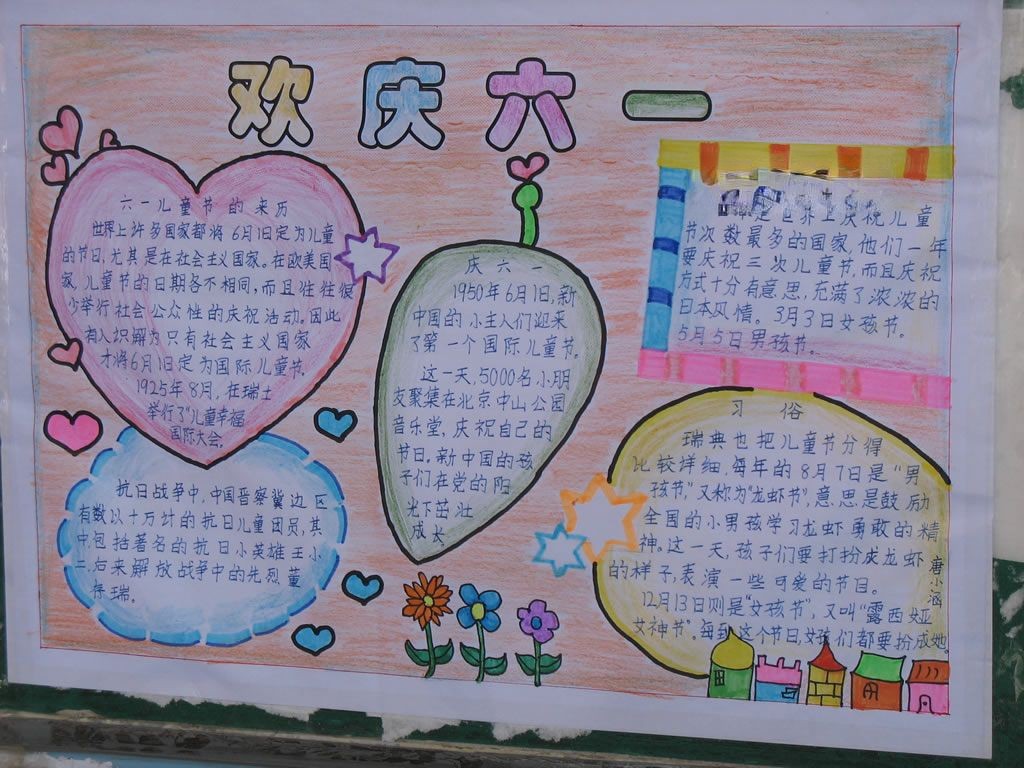 欢庆六一
六一儿童节的来历
世界上许多国家都将6月1日定为儿童
的节日,尤其是在社会主义国家。在欧美国
家,儿童节的日期各不相同,而且往往很
少举行社会公众性的庆祝活动。因此
有人识解为只有社会主义国家
才将6月1日定为国际儿童节.
1925年8月,在瑞士
举行了"儿童幸福
国际大会。
抗日战争中,中国晋察冀边区
有数以十万计的抗日儿童团员,其
中,包括著名的抗日小英雄王小
二,后来解放战争中的先烈董
存瑞。
庆六一
1950年6月1日,新
中国的小主人们迎来
了第一个国际儿童节。
这一天,5000名小朋
友聚集在北京中山公园
音乐堂,庆祝自己的
节日.新中国的孩
子们在党的阳
光下茁壮
成长
是世界上庆祝儿童
节次数最多的国家,他们一年
要庆祝三次儿童节,而且庆祝
方式十分有意思,充满了浓浓的
日本风情。3月3日女孩节。
5月5日男孩节。
习俗
瑞典也把儿童节分得
比较详细,每年的8月7日是"男
孩节",又称为"龙虾节",意思是鼓励
全国的小男孩学习龙虾勇敢的精
神。这一天,孩子们要打扮成龙虾
的样子,表演一些可爱的节日。
12月13日则是"女孩节",又叫"露西娅
女神节"。每到这个节日,女孩们都要扮成她。
唐小涵